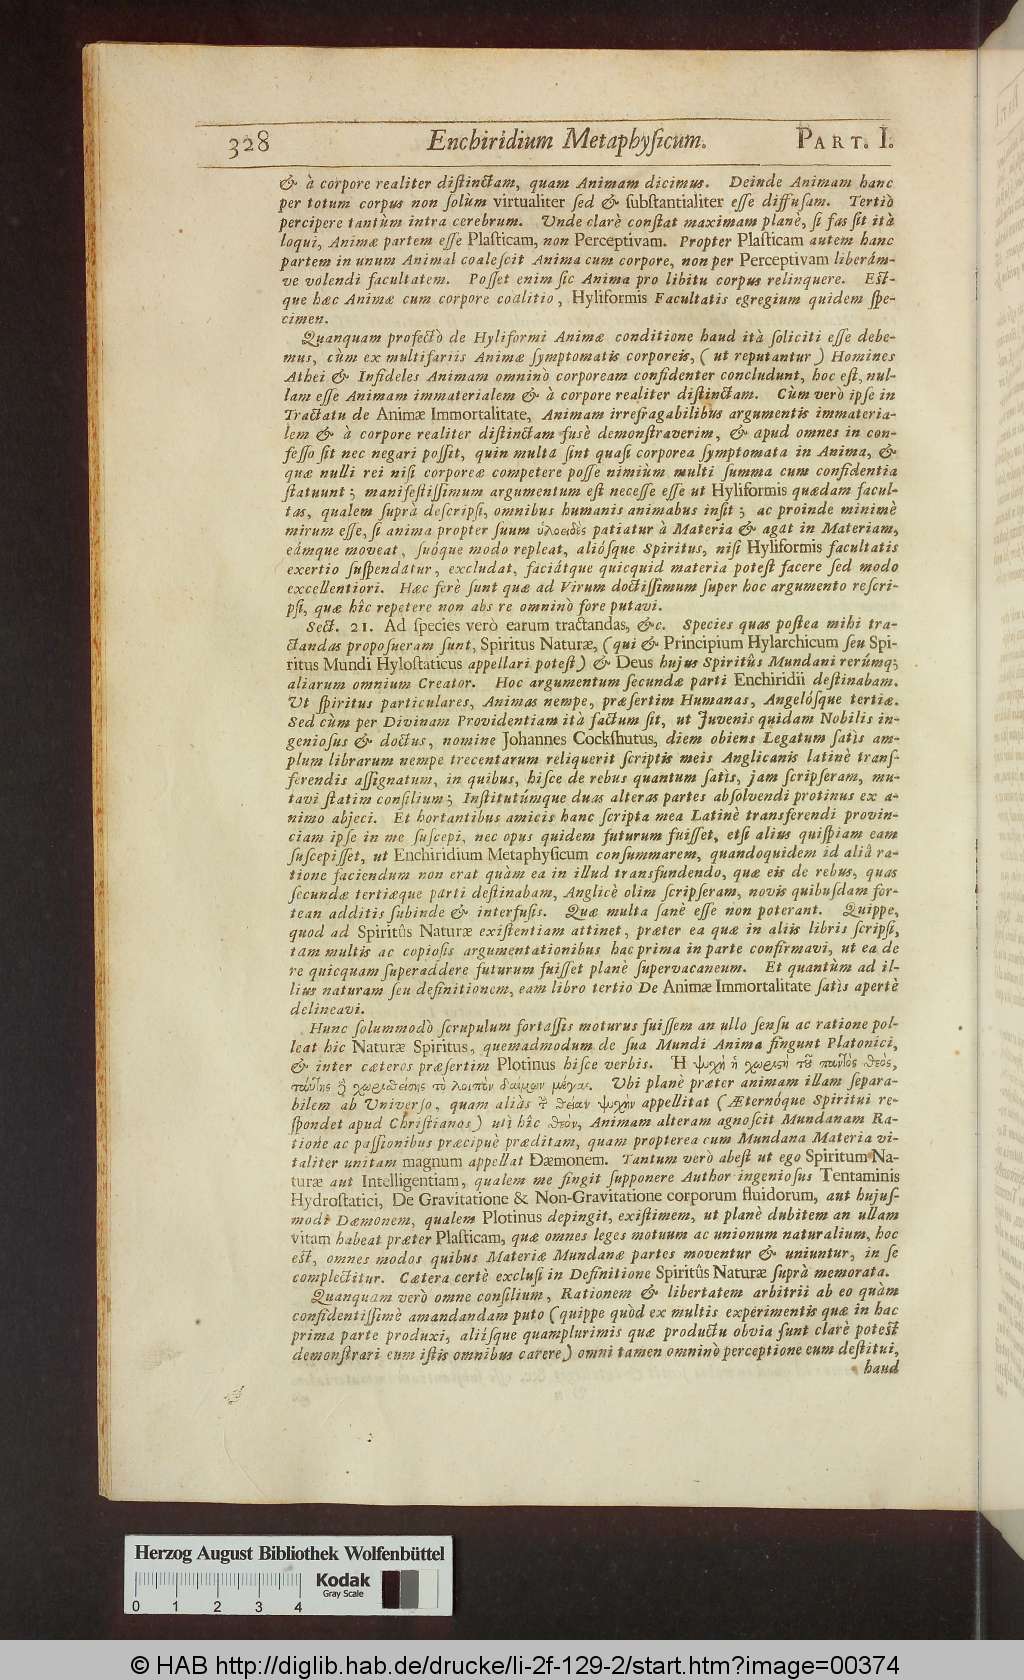 328 Enchiridium Metaphyſicum. PART. I.
& à corpore realiter diſtinctam, quam Animam dicimus. Deinde Animam hanc
per totum corpus non ſolùm virtualiter ſed & ſubſtantialiter eſſe diffuſam. Tertiò
percipere tantùm intra cerebrum. Unde clarè conſtat maximam planè, ſi fas ſit ità
loqui, Animæ partem eſſe Plaſticam, non Perceptivam. Propter Plaſticam autem hanc
partem in unum Animal coaleſcit Anima cum corpore, non per Perceptivam liberám-
ve volendi facultatem. Poſſet enim ſic Anima pro libitu corpus relinquere. Eſt-
que hæc Animæ cum corpore coalitio, Hyliformis Facultatis egregium quidem ſpe-
cimen.
Quanquam profectò de Hyliformi Animæ conditione haud ità ſoliciti eſſe debe-
mus, cùm ex multifariis Animæ ſymptomatis corporeis, (ut reputantur) Homines
Athei & Infideles Animam omninò corpoream confidenter concludunt, hoc eſt, nul-
lam eſſe Animam immaterialem & à corpore realiter diſtinctam. Cùm verò ipſe in
Tractatu de Animæ Immortalitate, Animam irrefragabilibus argumentis immateria-
lem & à corpore realiter diſtinctam fusè demonſtraverim, & apud omnes in con-
feſſo ſit nec negari poſſit, quin multa ſint quaſi corporea ſymptomata in Anima, &
quæ nulli rei niſi corporeæ competere poſſe nimiùm multi ſumma cum confidentia
ſtatuunt; manifeſtiſſimum argumentum eſt neceſſe eſſe ut Hyliformis quædam facul-
tas, qualem ſuprà deſcripſi, omnibus humanis animabus inſit; ac proinde minimè
mirum eſſe, ſi anima propter ſuum ὑλοειδὲς patiatur à Materia & agat in Materiam,
eámque moveat, ſuóque modo repleat, alióſque Spiritus, niſi Hyliformis facultatis
exertio ſuſpendatur, excludat, faciátque quicquid materia poteſt facere ſed modo
excellentiori. Hæc ferè ſunt quæ ad Virum doctiſſimum ſuper hoc argumento reſcri-
pſi, quæ hîc repetere non abs re omninò fore putavi.
Sect. 21. Ad ſpecies verò earum tractandas, &c. Species quas poſtea mihi tra-
ctandas propoſueram ſunt, Spiritus Naturæ, (qui & Principium Hylarchicum ſeu Spi-
ritus Mundi Hyloſtaticus appellari poteſt) & Deus hujus Spiritûs Mundani rerúmq;
aliarum omnium Creator. Hoc argumentum ſecundæ parti Enchiridii deſtinabam.
Ut ſpiritus particulares, Animas nempe, præſertim Humanas, Angelóſque tertiæ.
Sed cùm per Divinam Providentiam ità factum ſit, ut Juvenis quidam Nobilis in-
genioſus & doctus, nomine Johannes Cockſhutus, diem obiens Legatum ſatìs am-
plum librarum nempe trecentarum reliquerit ſcriptis meis Anglicanis latinè transſ-
ferendis aſſignatum, in quibus, hiſce de rebus quantum ſatis, jam ſcripſeram, mu-
tavi ſtatim conſilium; Inſtitutúmque duas alteras partes abſolvendi protinus ex a-
nimo abjeci. Et hortantibus amicis hanc ſcripta mea Latinè transferendi provin-
ciam ipſe in me ſuſcepi, nec opus quidem futurum fuiſſet, etſi alius quiſpiam eam
ſuſcepiſſet, ut Enchiridium Metaphyſicum conſummarem, quandoquidem id aliâ ra-
tione faciendum non erat quàm ea in illud transfundendo, quæ eis de rebus, quas
ſecundæ tertiæque parti deſtinabam, Anglicè olim ſcripſeram, novis quibuſdam for-
tean additis ſubinde & interfuſis. Quæ multa ſanè eſſe non poterant. Quippe,
quod ad Spiritûs Naturæ exiſtentiam attinet, præter ea quæ in aliis libris ſcripſi,
tam multis ac copioſis argumentationibus hac prima in parte confirmavi, ut ea de
re quicquam ſuperaddere futurum fuiſſet planè ſupervacaneum. Et quantùm ad il-
lius naturam ſeu definitionem, eam libro tertio De Animæ Immortalitate ſatis apertè
delineavi.
Hunc ſolummodò ſcrupulum fortaſſis moturus fuiſſem an ullo ſenſu ac ratione pol-
leat hic Naturæ Spiritus, quemadmodum de ſua Mundi Anima fingunt Platonici,
& inter cæteros præſertim Plotinus hiſce verbis. Ἡ ψυχὴ ἡ χωριστὴ τοῦ παντὸς θεὸς,
ταύτης ἢ χωρισθείσης τὸ λοιπὸν δαίμων μέγας. Ubi planè præter animam illam ſepara-
bilem ab Univerſo, quam aliàs τὴν θείαν ψυχὴν appellitat (Æternóque Spiritui re-
ſpondet apud Chriſtianos) uti hîc θεὸν, Animam alteram agnoſcit Mundanam Ra-
tione ac paſſionibus præcipuè præditam, quam propterea cum Mundana Materia vi-
taliter unitam magnum appellat Dæmonem. Tantum verò abeſt ut ego Spiritum Na-
turæ aut Intelligentiam, qualem me fingit ſupponere Author ingenioſus Tentaminis
Hydroſtatici, De Gravitatione & Non-Gravitatione corporum fluidorum, aut hujuſ-
modi Dæmonem, qualem Plotinus depingit, exiſtimem, ut planè dubitem an ullam
vitam habeat præter Plaſticam, quæ omnes leges motuum ac unionum naturalium, hoc
eſt, omnes modos quibus Materiæ Mundanæ partes moventur & uniuntur, in ſe
complectitur. Cætera certè excluſi in Definitione Spiritûs Naturæ ſuprà memorata.
Quanquam verò omne conſilium, Rationem & libertatem arbitrii ab eo quàm
confidentiſſimè amandandam puto (quippe quòd ex multis experimentis quæ in hac
prima parte produxi, aliíſque quamplurimis quæ productu obvia ſunt clarè poteſt
demonſtrari eum iſtis omnibus carere) omni tamen omninò perceptione eum deſtitui,
haud
Herzog August Bibliothek Wolfenbüttel
Kodak
Gray Scale
0 1 2 3 4
© HAB http://diglib.hab.de/drucke/li-2f-129-2/start.htm?image=00374